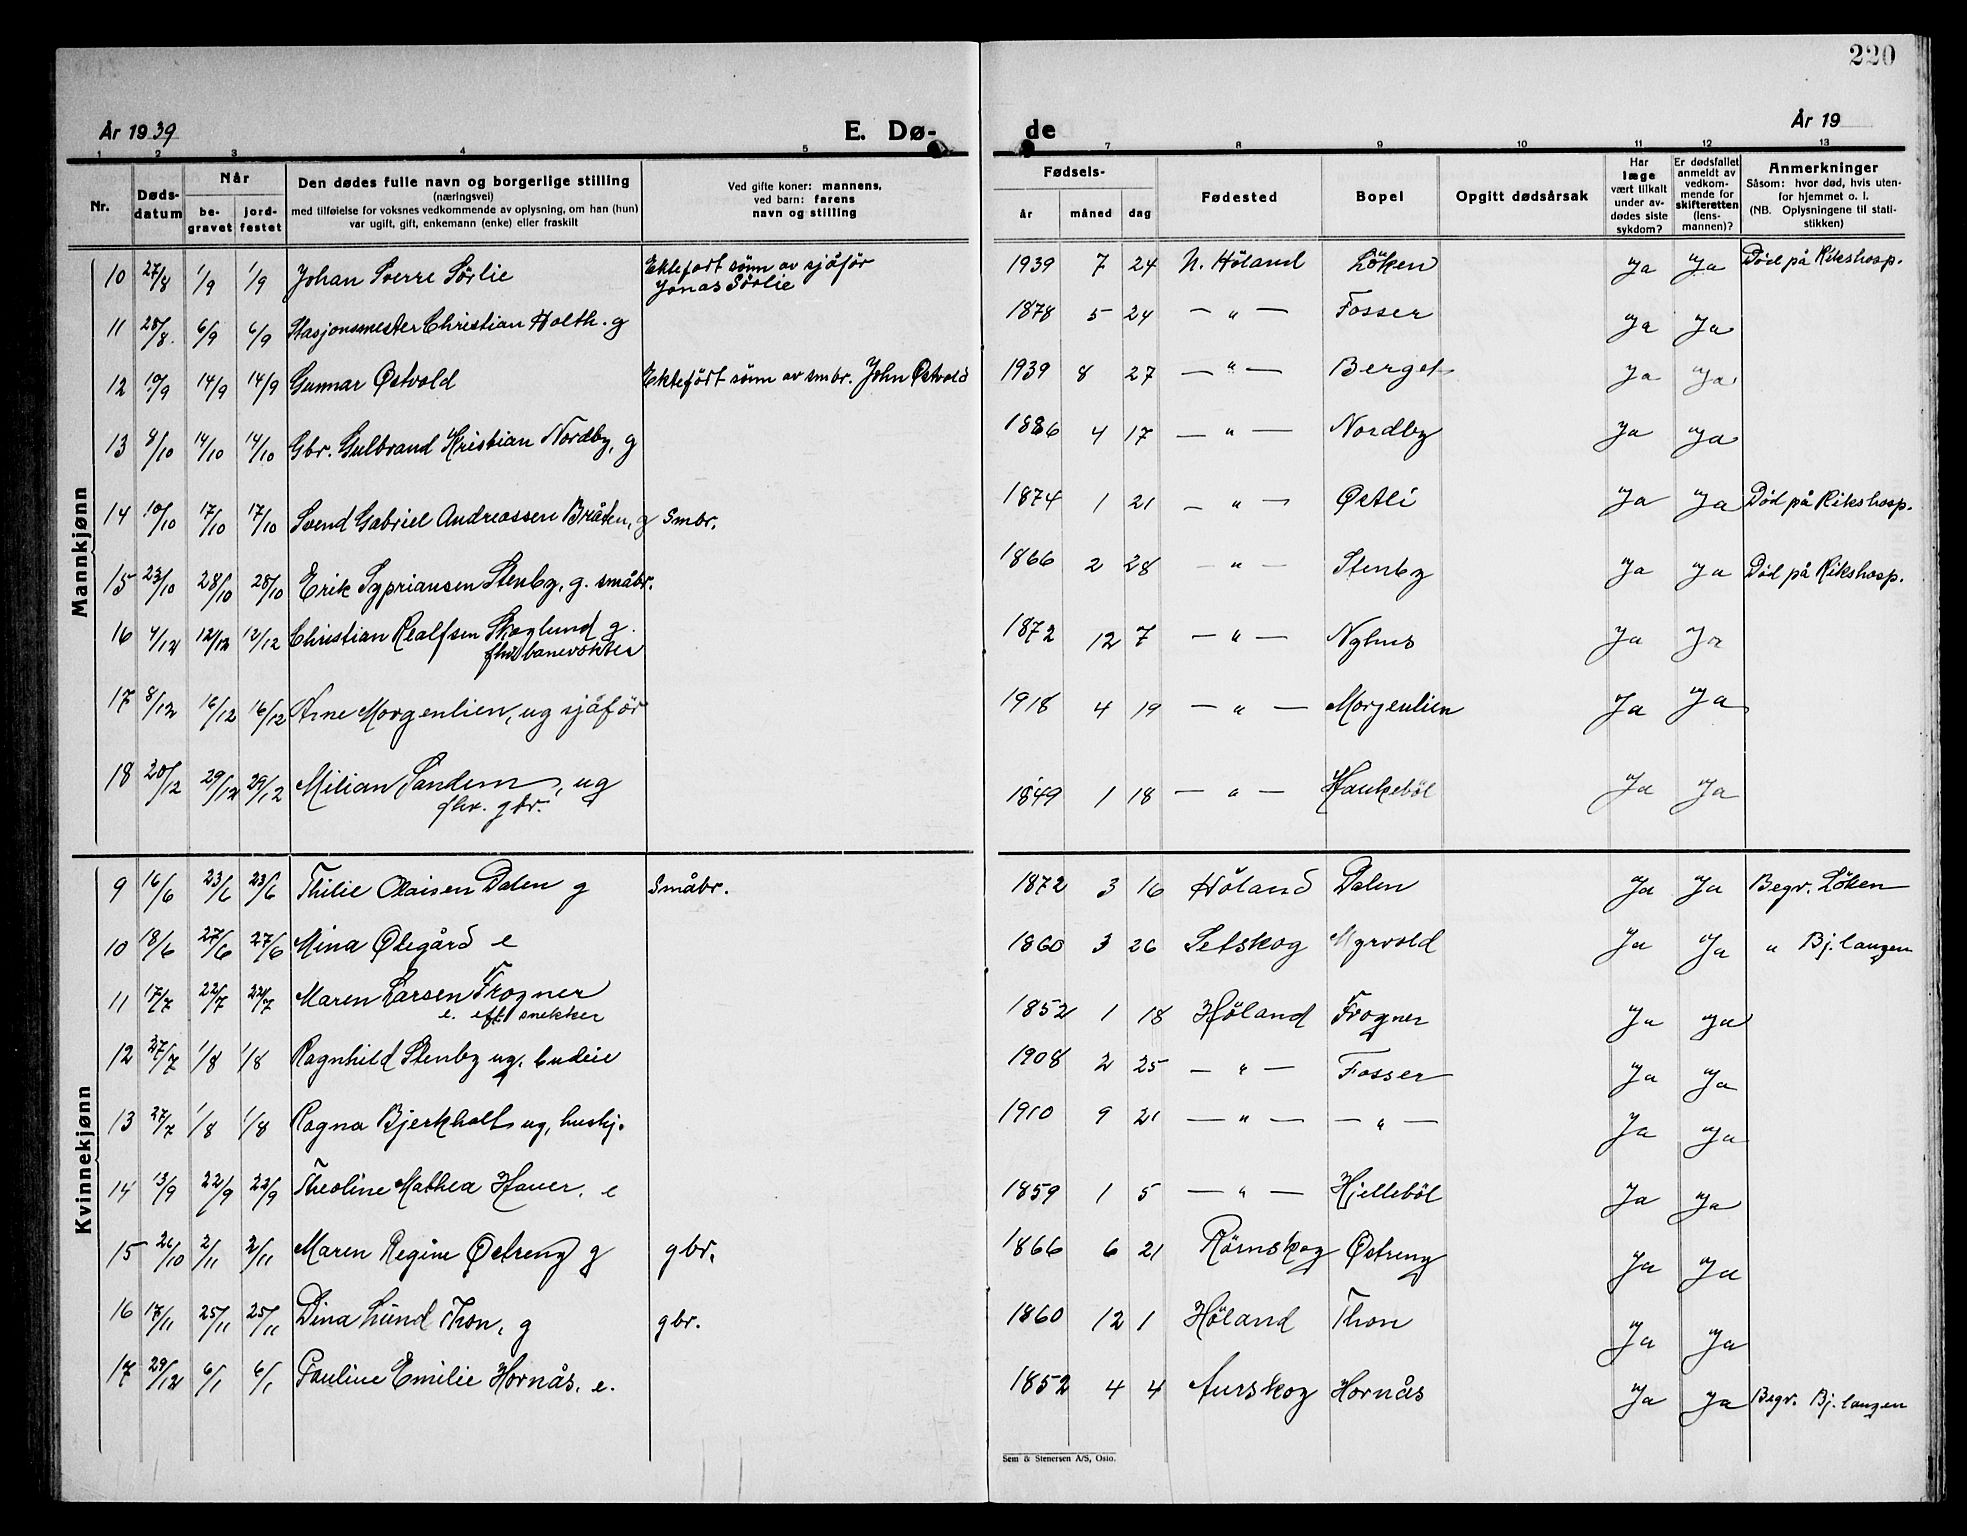 220
År 1939
E. Dø-
de
År 19
1 2 3 4 5 7 8 9 10 11 12 13
Nr.
Døds-
datum
Når
be-
gravet
jord-
festet
Den dødes fulle navn og borgerlige stilling
(næringsvei)
med tilføielse for voksnes vedkommende av oplysning, om han (hun)
var ugift, gift, enkemann (enke) eller fraskilt
Ved gifte koner: mannens,
ved barn: farens
navn og stilling
Fødsels-
år måned dag
Fødested
Bopel
Opgitt dødsårsak
Har
læge
vært tilkalt
under av-
dødes siste
sykdom?
Er dødsfallet
anmeldt av
vedkom-
mende for
skifteretten
(lens-
mannen)?
Anmerkninger
Såsom: hvor død, hvis uten-
for hjemmet o. l.
(NB. Oplysningene til stati-
stikken)
Mannkjønn
10 27/8 1/9 1/9 Johan Sverre Sørlie Ektefødt sønn av sjåfør 1939 7 24 N. Höland Löken Ja Ja Död på Rikshosp.
Jonas Sörlie
11 28/8. 6/9 6/9 Stasjonsmester Christian Holth. g 1878 5 24 — " — Fosser Ja Ja
12 10/9 14/9 14/9 Gunnar Østvold Ektefödt sönn av smbr. John Östvold 1939 8 27 — " — Berget Ja Ja
13 8/10 14/10 14/10 Gbr. Gulbrand Kristian Nordby, g 1886 4 17 — " — Nordby Ja Ja
14 10/10 17/10 17/10 Svend Gabriel Andreassen Bråten, g smbr. 1874 1 21 — " — Østli Ja Ja Död på Rikshosp.
15 23/10 28/10 28/10 Erik Sypriansen Stenby, g. småbr. 1866 2 28 — " — Stenby Ja Ja Död på Rikshosp.
16 4/12 12/12 12/12 Christian Realfsen Skoglund g. 1872 12 7 — " — Nyhus Ja Ja
fhv banevokter
17 8/12 16/12 16/12 Arne Morgenlien, ug sjåför 1918 4 19 — " — Morgenlien Ja Ja
18 20/12 29/12 29/12 Milian Sandem, ug 1849 1 18 — " — Haukeböl Ja Ja
fhv. gbr.
Kvinnekjønn
9 16/6 23/6 23/6 Thilie Olaisen Dalen g Småbr. 1872 3 16 Höland Dalen Ja Ja Begr. Löken
10 18/6 27/6 27/6 Mina Ødegård e 1860 3 26 Setskog Myrvold Ja Ja " Bj. langen
11 17/7 22/7 22/7 Maren Larsen Frogner 1852 1 18 Höland Frogner Ja Ja
e. eft. snekker
12 27/7 1/8 1/8 Ragnhild Stenby ug. budeie 1908 2 25 — " — Fosser Ja Ja
13 27/7 1/8 1/8 Ragna Bjerkholt ug, hushj. 1910 9 21 — " — — " — Ja Ja
14 13/9 22/9 22/9 Theoline Mathea Hauer. e 1859 1 5 — " — Hjelleböl Ja Ja
15 26/10 2/11 2/11 Maren Regine Østreng g gbr. 1866 6 21 Römskog Östreng Ja Ja
16 17/11 25/11 25/11 Dina Lund Thon, g gbr. 1860 12 1 Höland Thon Ja Ja
17 29/12 6/1 6/1 Pauline Emilie Hornås. e. 1852 4 4 Aurskog Hornås Ja Ja Begr. Bj. langen
Sem & Stenersen A/S, Oslo.